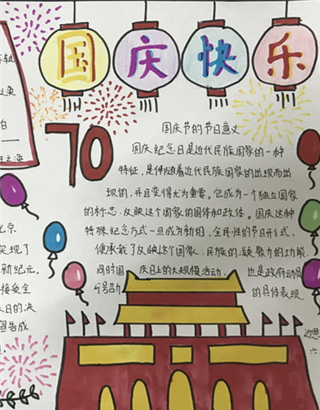 国庆快乐
70
国庆节的节日意义
国庆纪念日是近代民族国家的一种
特征,是伴随着近代民族国家的出现而出
现的,并且变得尤为重要。它成为一个独立国家
的标志,反映这个国家的国体和政体。国庆这种
特殊纪念方式一旦成为新的、全民性的节日形式,
便承载了反映这个国家、民族的凝聚力的功能。
同时国庆日上的大规模活动,也是政府动员
与号召力的具体表现
北京
实现了
新纪元。
接受全
日的决
宣告成
边思
六